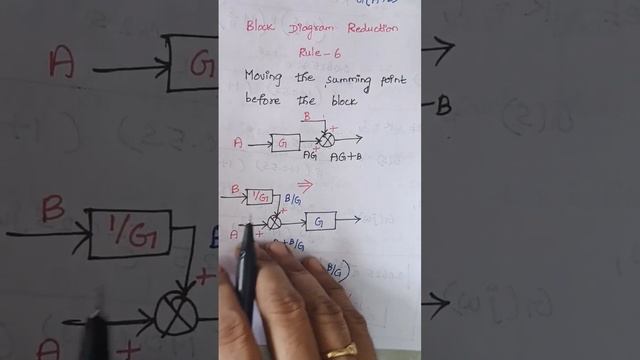 Block Diagram Reduction
Rule-6
Moving the summing point
before the block
B
+
A G
AG + AG+B
B 1/G B/G
+
G
A +
+B/G
B/G)